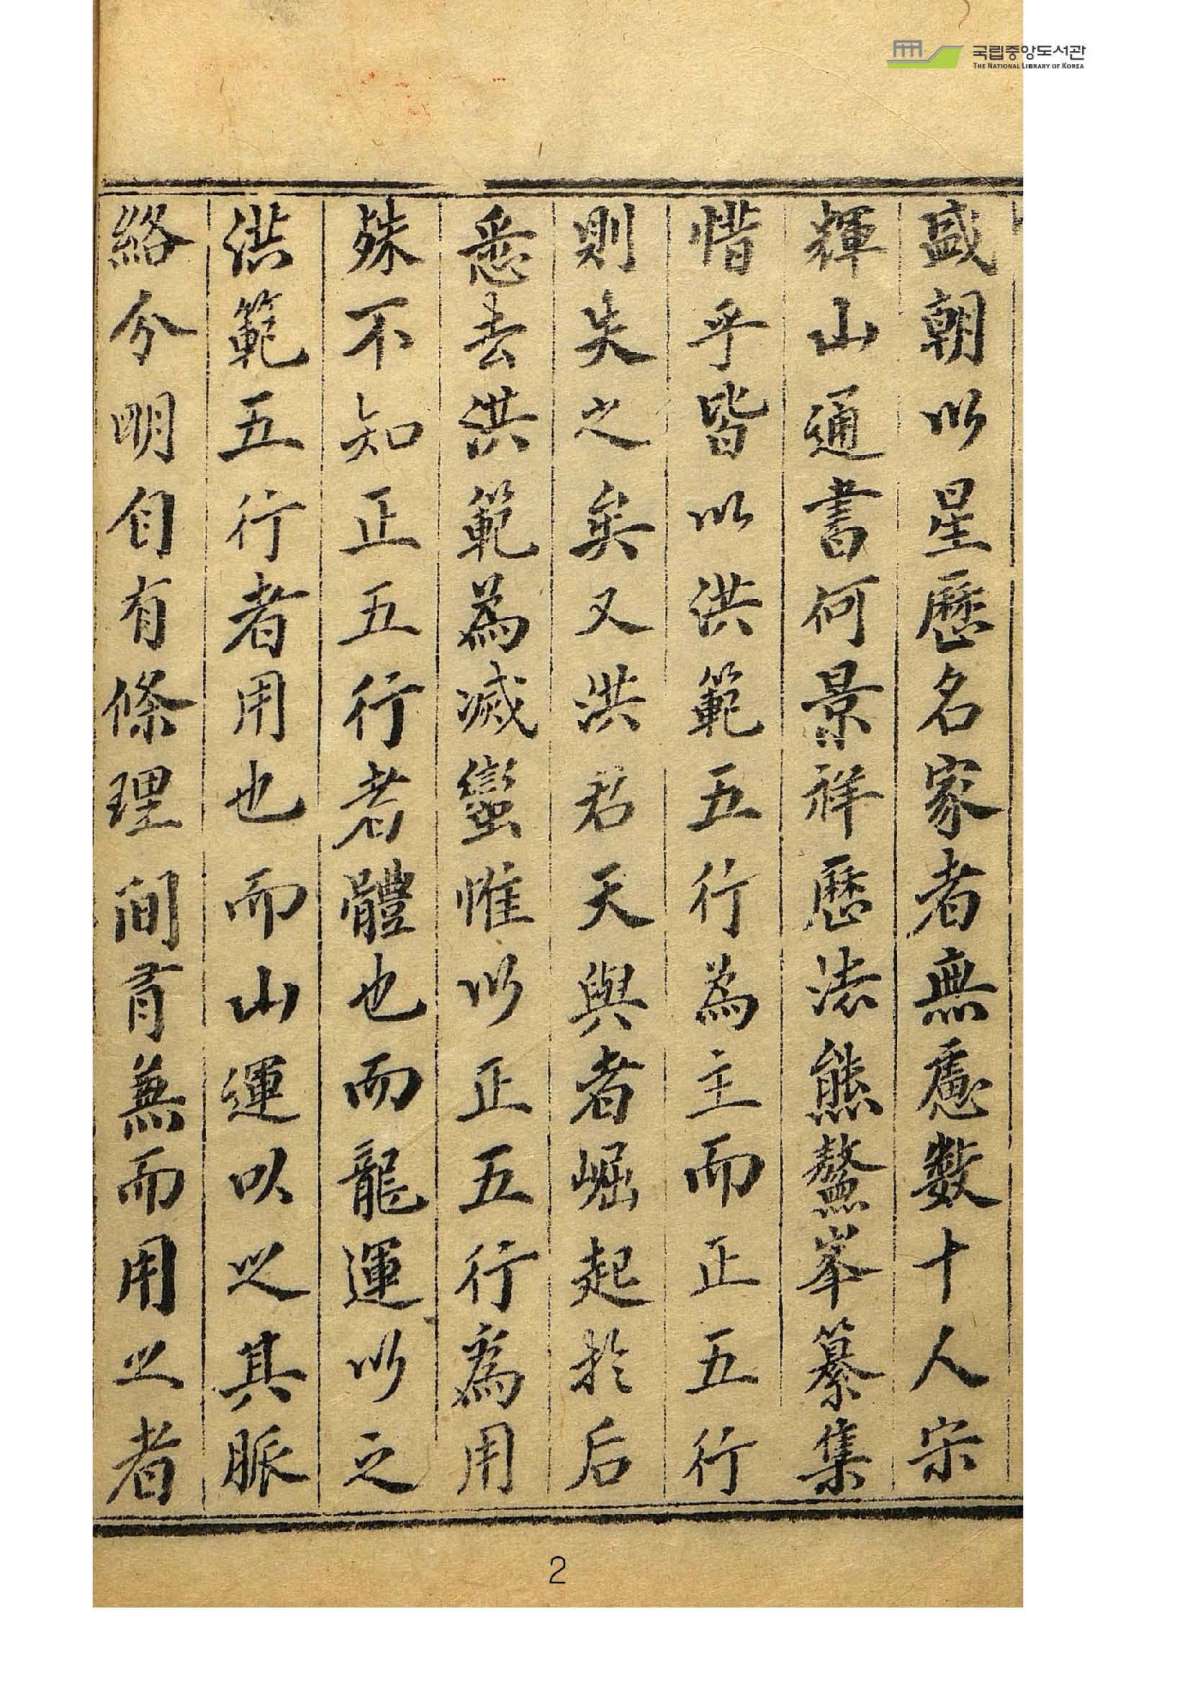 국립중앙도서관
THE NATIONAL LIBRARY OF KOREA
盛朝以星歷名家者無慮數十人宋
輝山通書何景祥歷法熊鰲峯纂集
惜乎皆以洪範五行為主而正五行
則失之矣又洪君天與者崛起於后
悉去洪範為滅蠻惟以正五行為用
殊不知正五行者體也而龍運以之
洪範五行者用也而山運以之其脈
絡分明自有條理間有兼而用之者
2